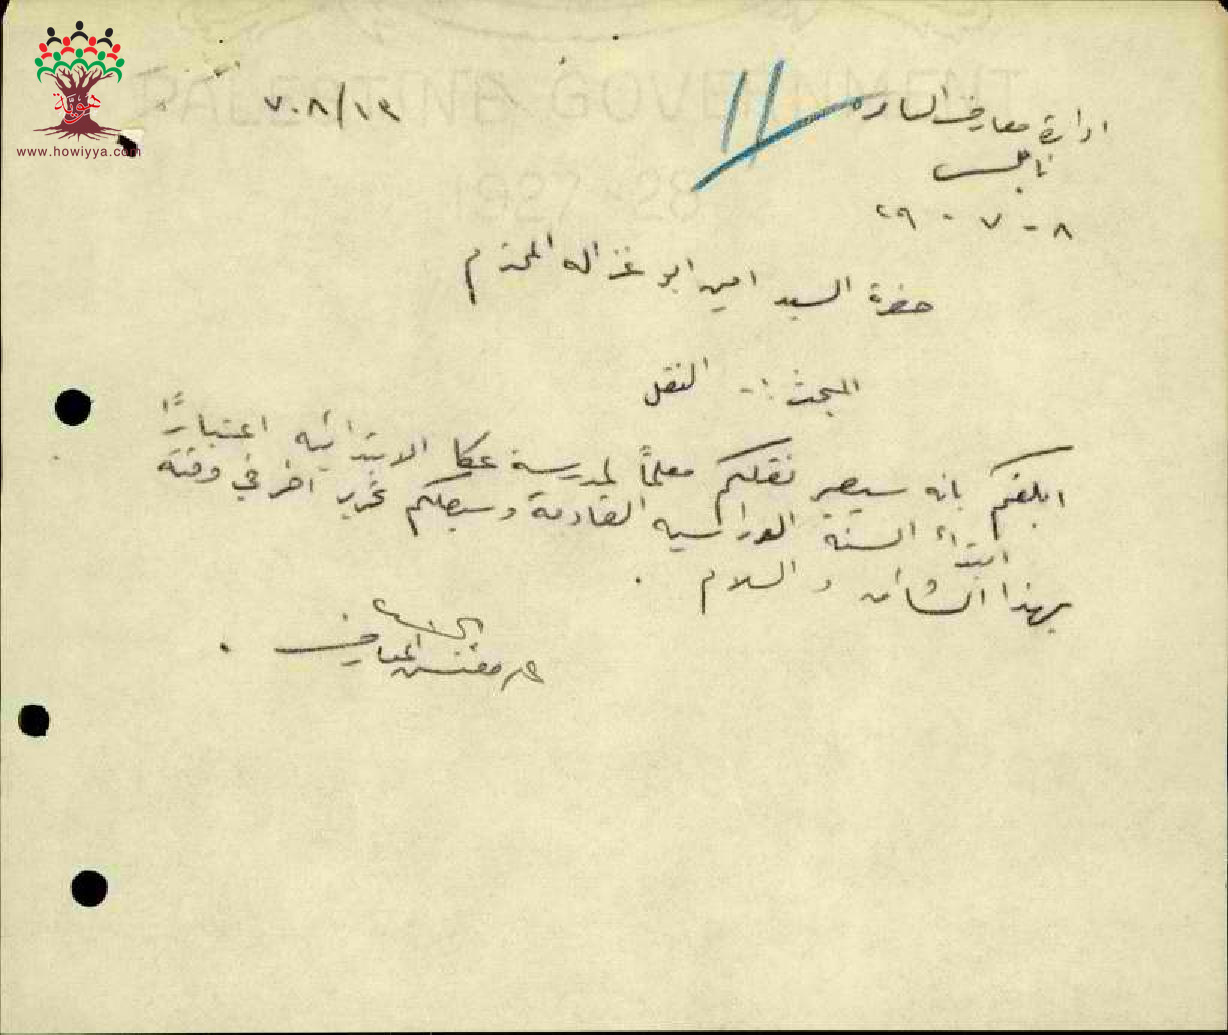 هوية
www.howiyya.com
PALESTINE GOVERNMENT
1927-28
٧٠٨/١٩
ادارة معارف السامره
نابلس
٨ - ٧ - ٢٩
حضرة السيد امين ابو غزاله المحترم
المبحث :- النقل
ابلغكم بانه سيصير نقلكم معلماً لمدرسة عكا الابتدائيه اعتباراً
من ابتداء السنة الدراسيه القادمة وسيصلكم تحرير اخر في وقته
بهذا الشأن والسلام .
مفتش المعارف